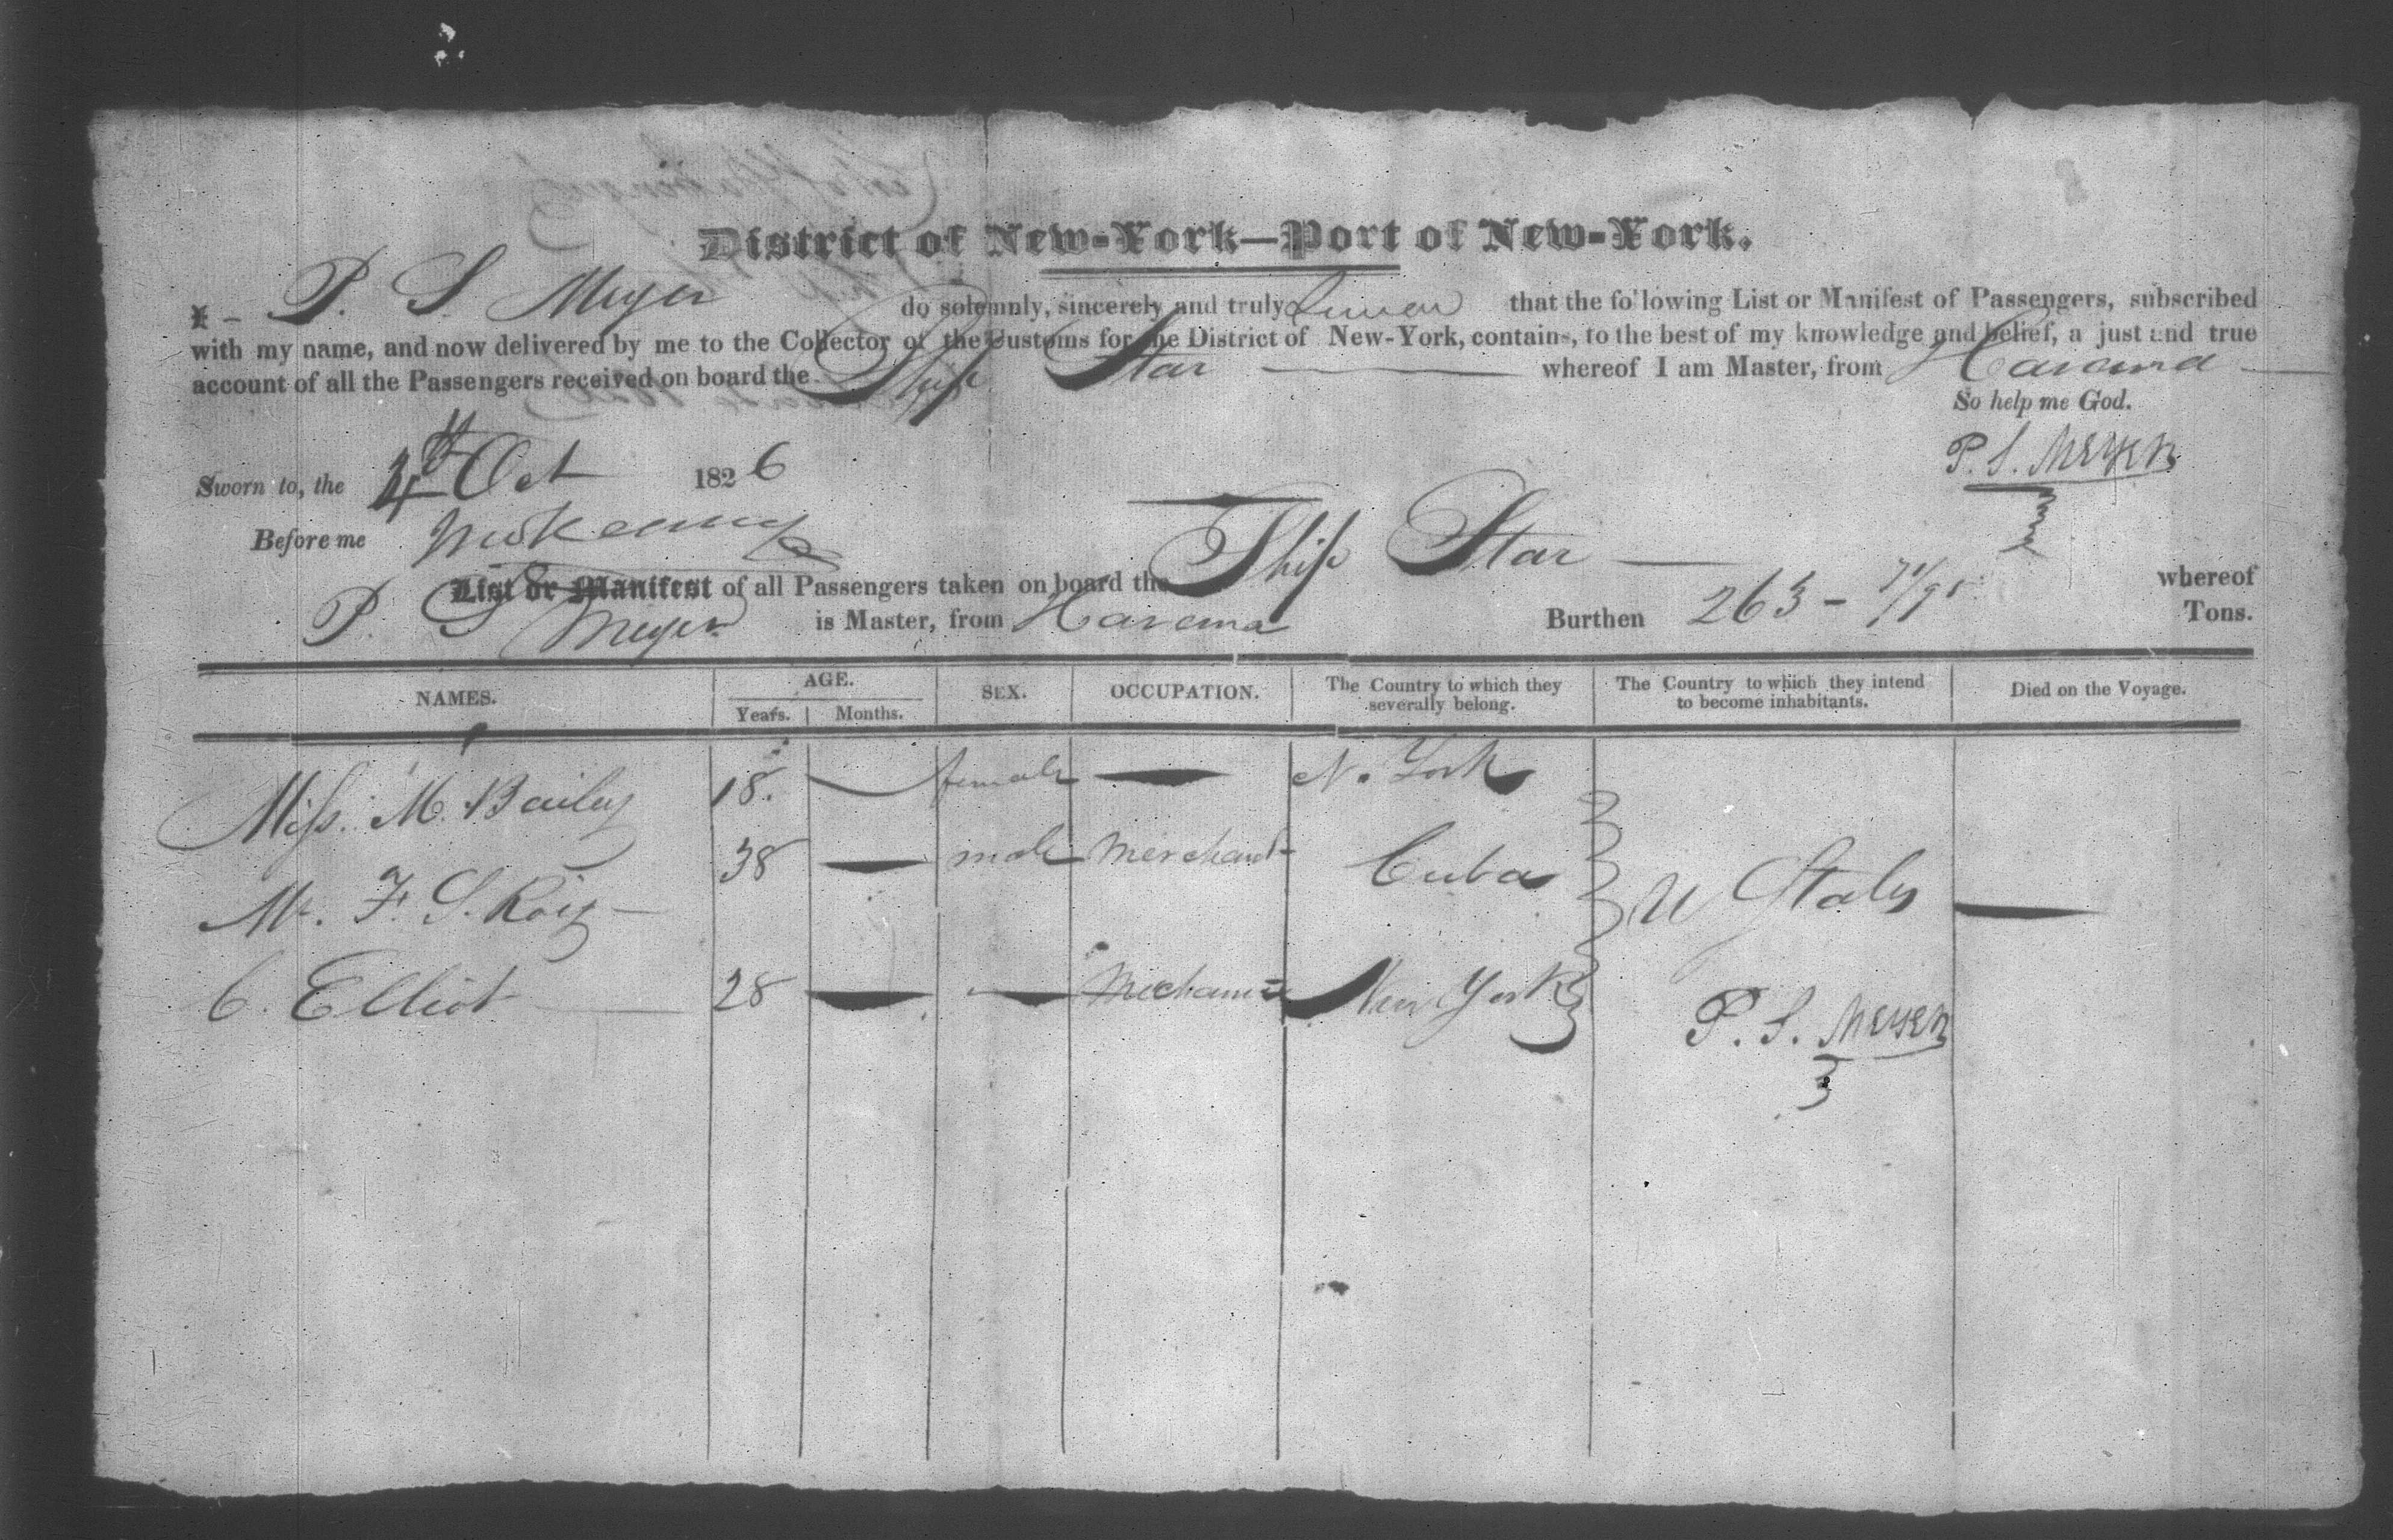 District of New-York—Port of New-York.
I - P. S. Meyer do solemnly, sincerely and truly swear that the following List or Manifest of Passengers, subscribed
with my name, and now delivered by me to the Collector of the Customs for the District of New-York, contains, to the best of my knowledge and belief, a just and true
account of all the Passengers received on board the Ship Star whereof I am Master, from Havana
So help me God.
P. S. Meyer
Sworn to, the 4th Oct 1826
Before me
List or Manifest of all Passengers taken on board the Ship Star whereof
P. S Meyer is Master, from Havana Burthen 263 - 71/95 Tons.
NAMES. AGE. SEX. OCCUPATION. The Country to which they severally belong. The Country to which they intend to become inhabitants. Died on the Voyage.
Years. Months.
Miss. M. Bailey 18. female — N. York
Mr. F. S. Roig 38 — male Merchant Cuba U States —
C. Elliot 28 — — Mechanic New York
P. S. Meyer